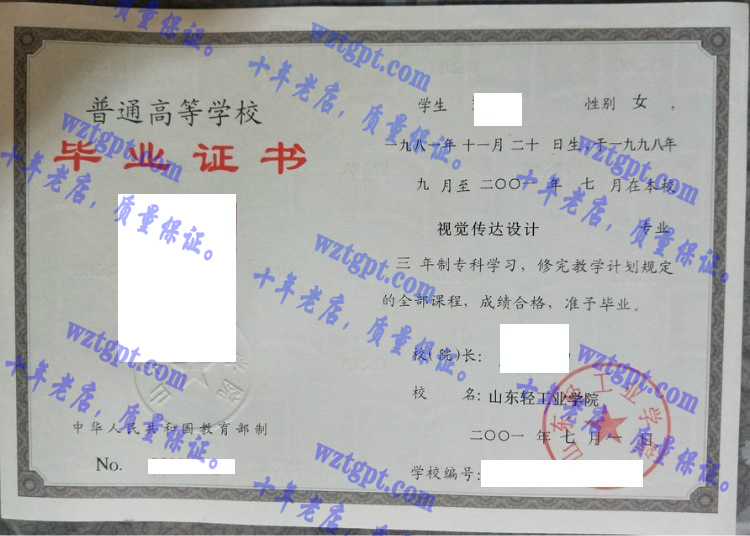 普通高等学校
毕业证书
中华人民共和国教育部制
No.
学生 性别 女 ,
一九八一年 十一月 二十 日生,于一九九八年
九 月至 二〇〇一 年 七 月在本校
视觉传达设计 专业
三 年制专科学习，修完教学计划规定
的全部课程，成绩合格，准予毕业。
校(院)长:
校 名: 山东轻工业学院
二〇〇一 年 七 月 一 日
学校编号:
山东轻工业学院
wztgpt.com
十年老店，质量保证。
wztgpt.com
十年老店，质量保证。
wztgpt.com
十年老店，质量保证。
wztgpt.com
十年老店，质量保证。
wztgpt.com
十年老店，质量保证。
wztgpt.com
十年老店，质量保证。
wztgpt.com
十年老店，质量保证。